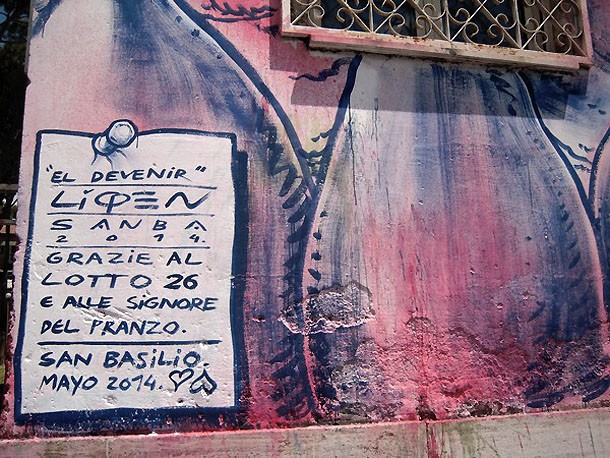 "EL DEVENIR"
LIQEN
SANBA
2014.
GRAZIE AL
LOTTO 26
E ALLE SIGNORE
DEL PRANZO.
SAN BASILIO.
MAYO 2014.